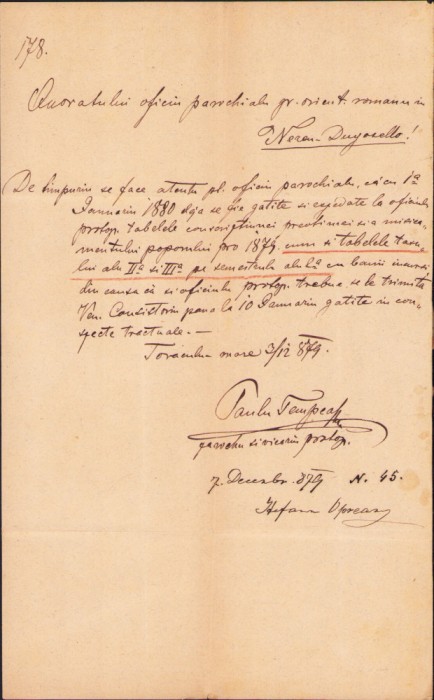 178.
Onoratului oficiu parochialu gr. orient. romanu in
Neren-Dugosello!
De timpuriu se face atentu pl. oficiu parochialu, că cu 1ª
Ianuariu 1880 deja se fie gatite si espedate la oficiulu
prstop. tabelele conscriptiunei preotimei si a misica-
mentului poporului pro 1879, cum si tabelele tacse-
lui alu IIª si IIIª pe semestrulu alu 2ª cu banii incursi
din causa că si oficiulu prstop. trebue se le trimita
Ven. Consistoriu pana la 10 Ianuariu gatite in con-
specte tractuale. —
Toraculu mare 3/12 879.
Paulu Tempea
parochu si vicariu prstop.
7. Decembr. 879 N. 45.
Stefanu Oprean